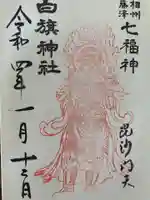 相州
藤澤
七福神
毘沙門天
白旗神社
令和四年一月十三日